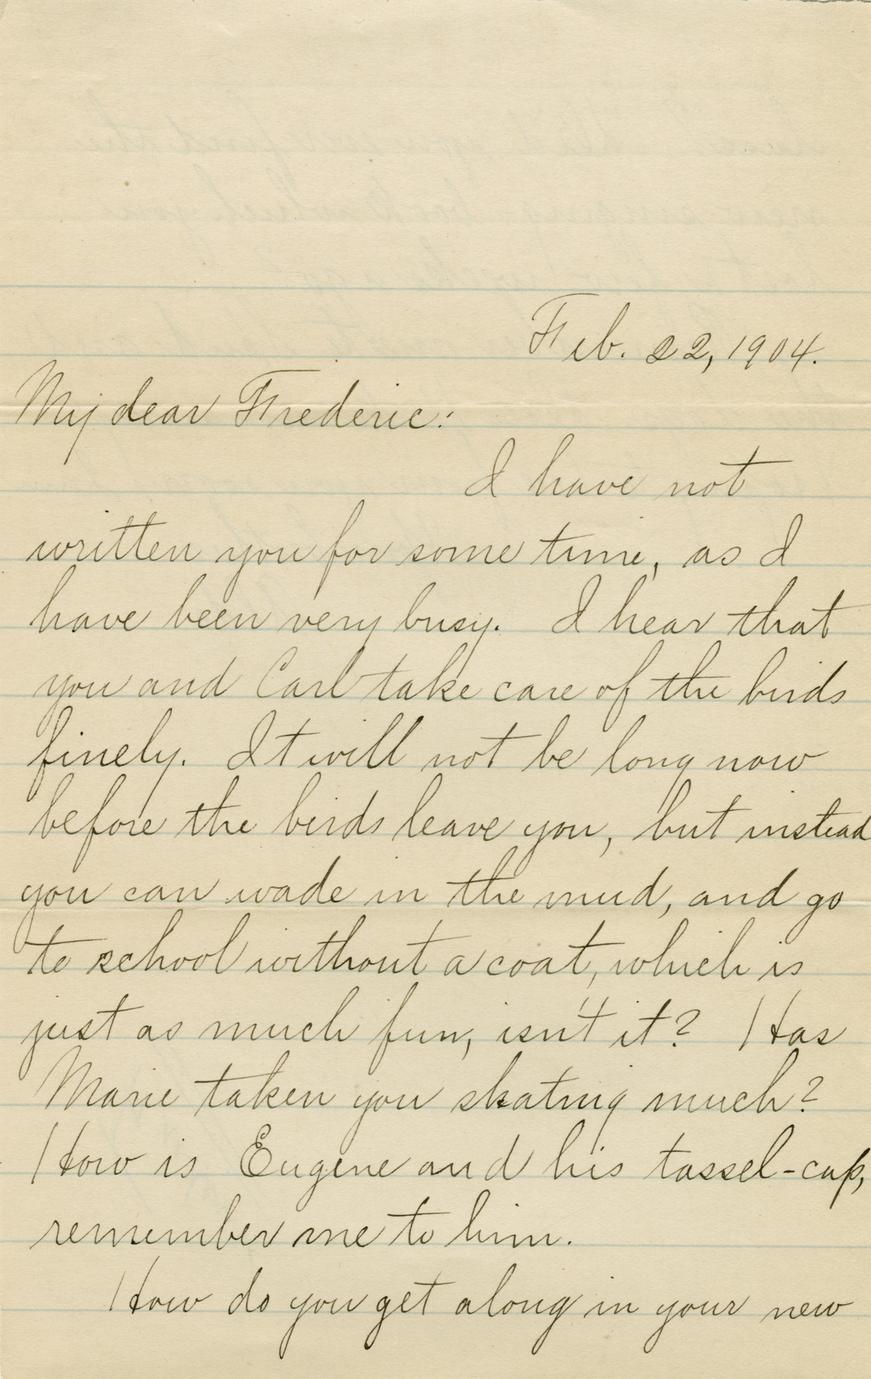 Feb. 22, 1904.
My dear Frederic:
I have not
written you for some time, as I
have been very busy. I hear that
you and Carl take care of the birds
finely. It will not be long now
before the birds leave you, but instead
you can wade in the mud, and go
to school without a coat, which is
just as much fun, isn't it? Has
Marie taken you skating much?
How is Eugene and his tassel-cap,
remember me to him.
How do you get along in your new